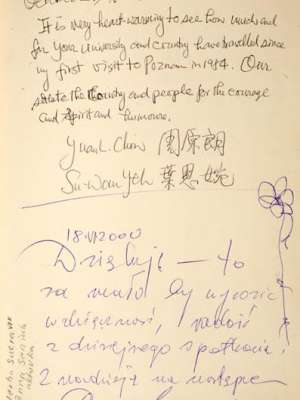 It is very heart-warming to see how much and
far your university and country have travelled since
my first visit to Poznan in 1984. Our
salute the country and people for the courage
and spirit and humour.
Yuan L. Chin
Su-Won Yeh 葉恩婉
18.VI 2000
Dziękuję – to
za mało by wyrazić
wdzięczność, radość
z dzisiejszego spotkania!
Z nadzieją na następne